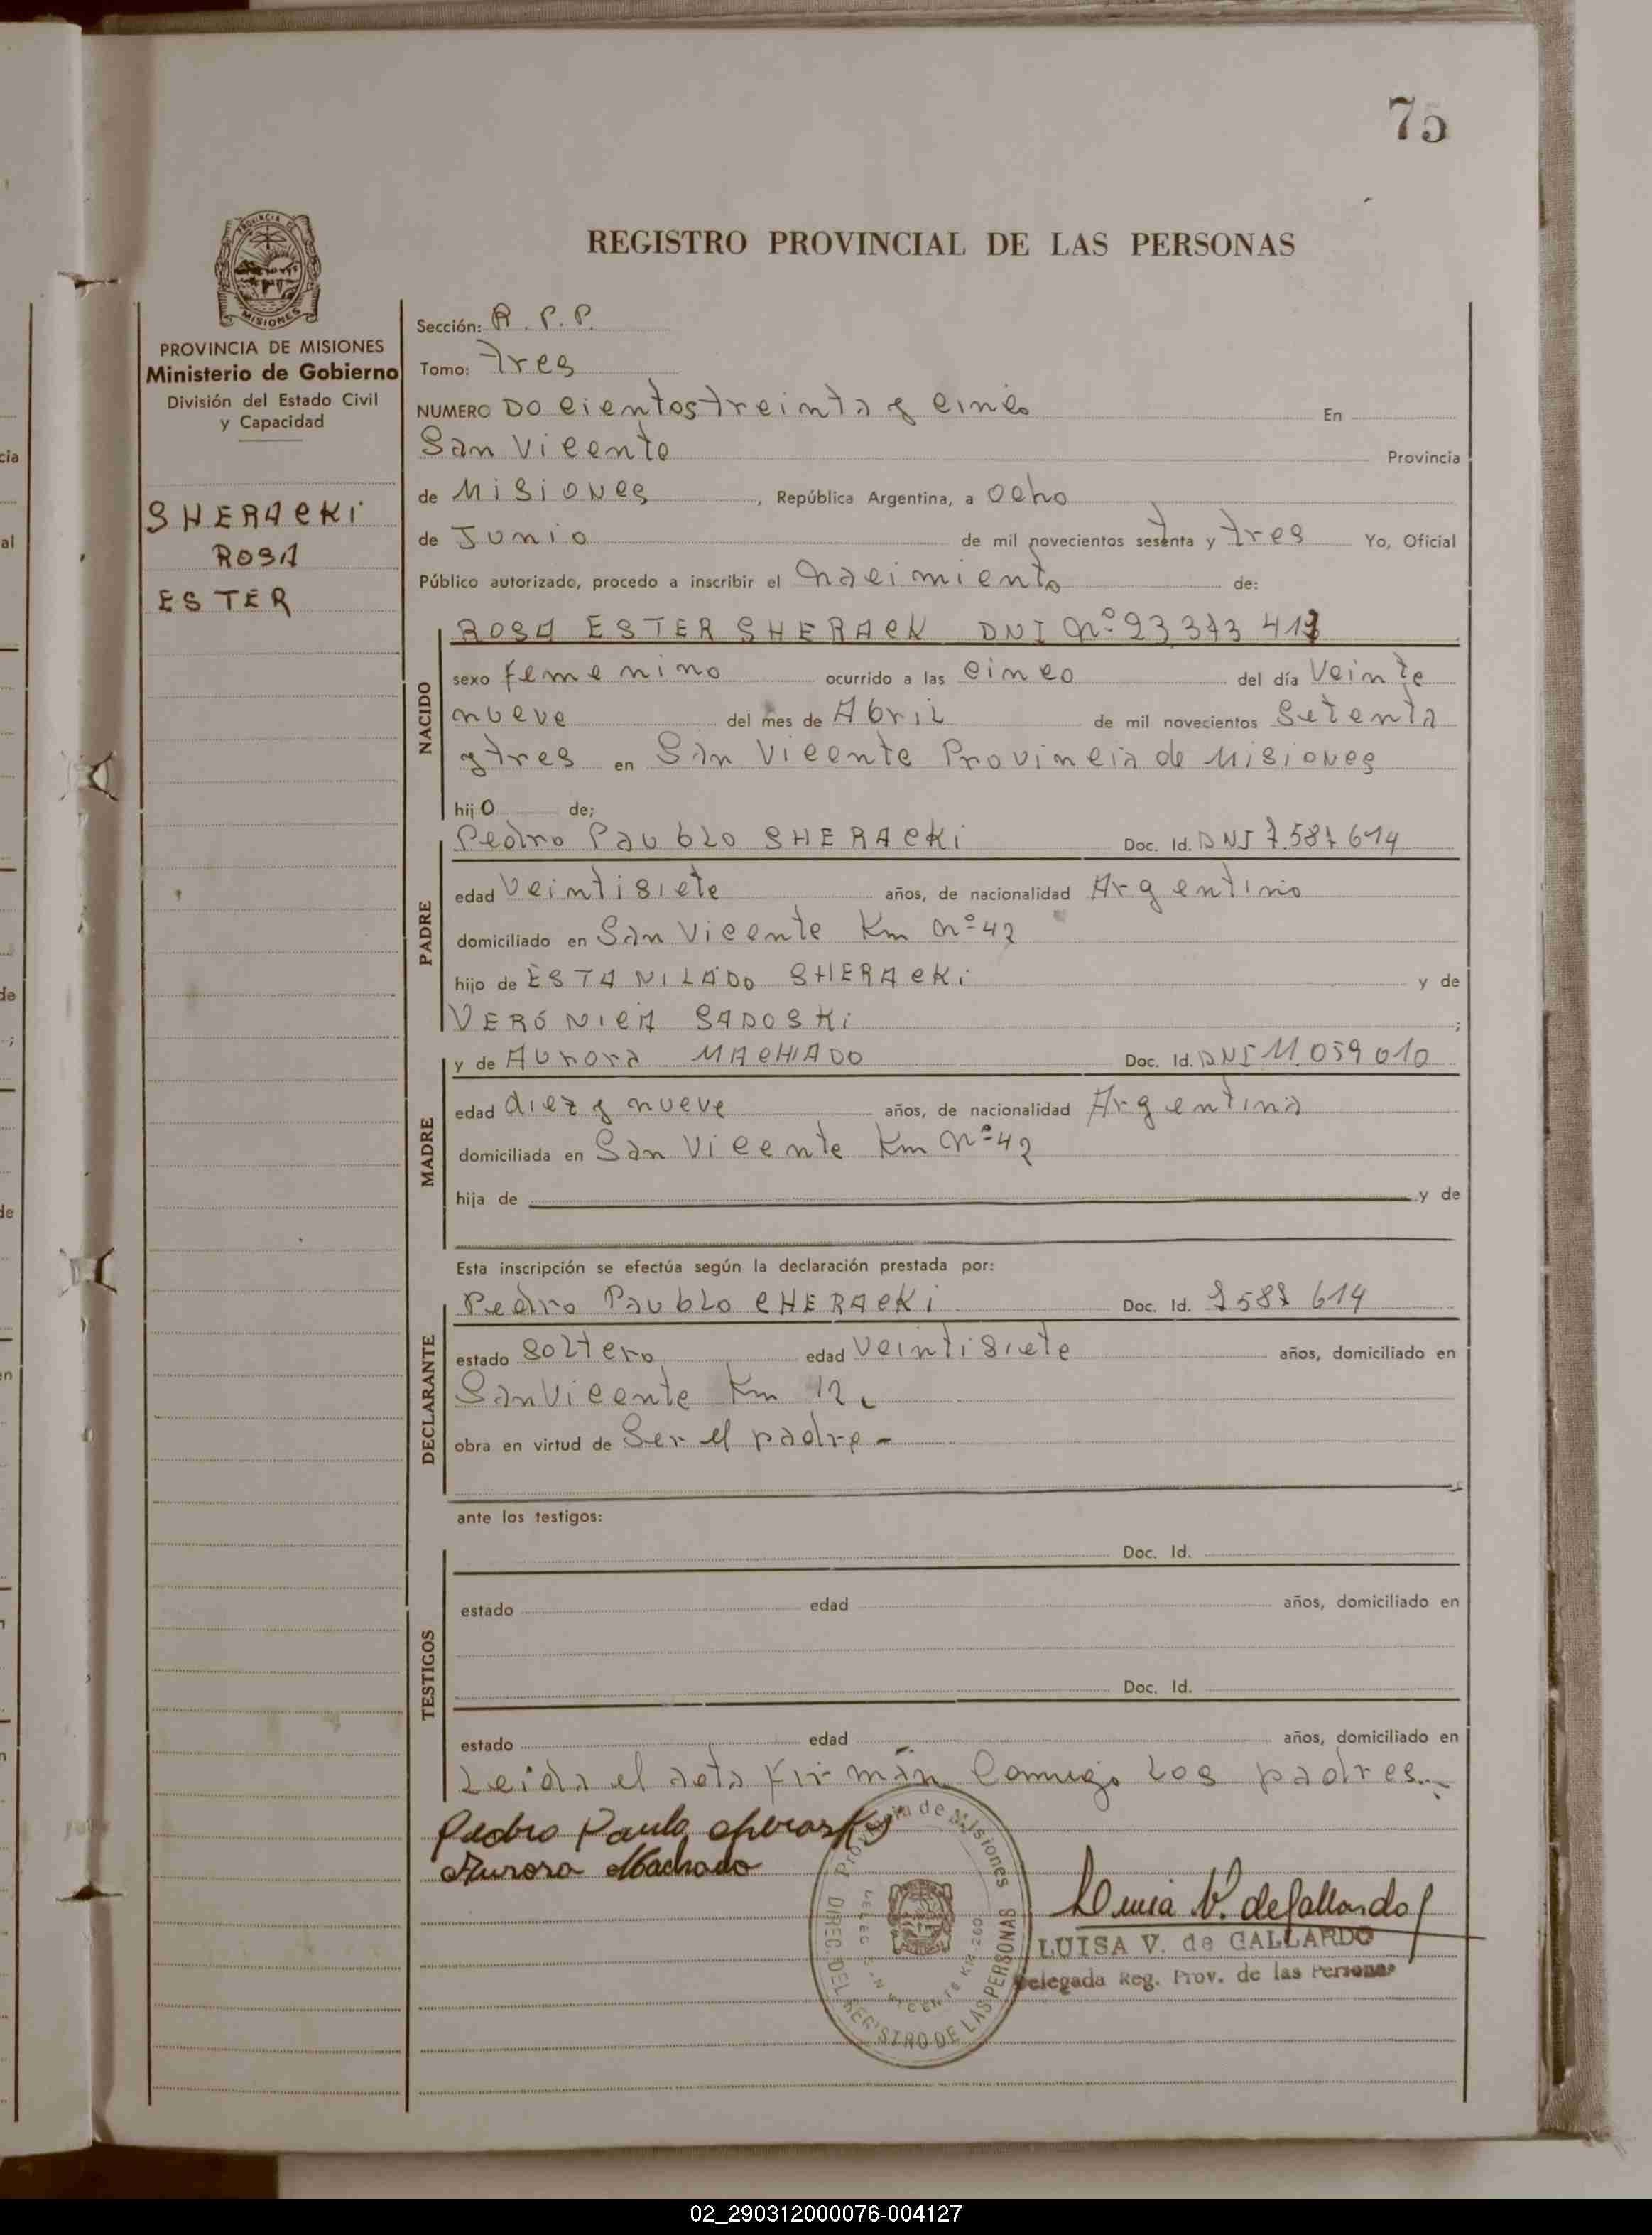 75
REGISTRO PROVINCIAL DE LAS PERSONAS
PROVINCIA DE
MISIONES
PROVINCIA DE MISIONES
Ministerio de Gobierno
División del Estado Civil
y Capacidad
SHERACKI
ROSA
ESTER
Sección: R. P. P.
Tomo: tres
NUMERO DO cientos treinta y cinco En
San Vicente Provincia
de Misiones, República Argentina, a ocho
de Junio de mil novecientos sesenta y tres Yo, Oficial
Público autorizado, procedo a inscribir el nacimiento de:
NACIDO
ROSA ESTER SHERACK DNI Nº 23 373 417
sexo femenino ocurrido a las cinco del día Veinte
nueve del mes de Abril de mil novecientos Setenta
y tres en San Vicente Provincia de Misiones
hijo de;
PADRE
Pedro Paublo SHERACKi Doc. Id. DNI 7.587 614
edad Veintisiete años, de nacionalidad Argentino
domiciliado en San Vicente Km Nº 42
hijo de ESTANILADO SHERACKi y de
VERÓNICA SADOSKi ;
MADRE
y de Aurora MACHADO Doc. Id. DNI 11.059 010
edad diez y nueve años, de nacionalidad Argentina
domiciliada en San Vicente Km Nº 42
hija de y de
Esta inscripción se efectúa según la declaración prestada por:
DECLARANTE
Pedro Paublo CHERACKi Doc. Id. 7587 614
estado soltero edad Veintisiete años, domiciliado en
San Vicente Km 12
obra en virtud de Ser el padre -
ante los testigos:
TESTIGOS
Doc. Id.
estado edad años, domiciliado en
Doc. Id.
estado edad años, domiciliado en
Leida el acta firmán Conmigo los padres.-
Pedro Paulo
Aurora Machado
Provincia de Misiones
DIREC. DEL REGISTRO DE LAS PERSONAS
SAN VICENTE
V. de Gallardo
LUISA V. de GALLARDO
Delegada Reg. Prov. de las Personas
cia
al
de
de
en
02_290312000076-004127